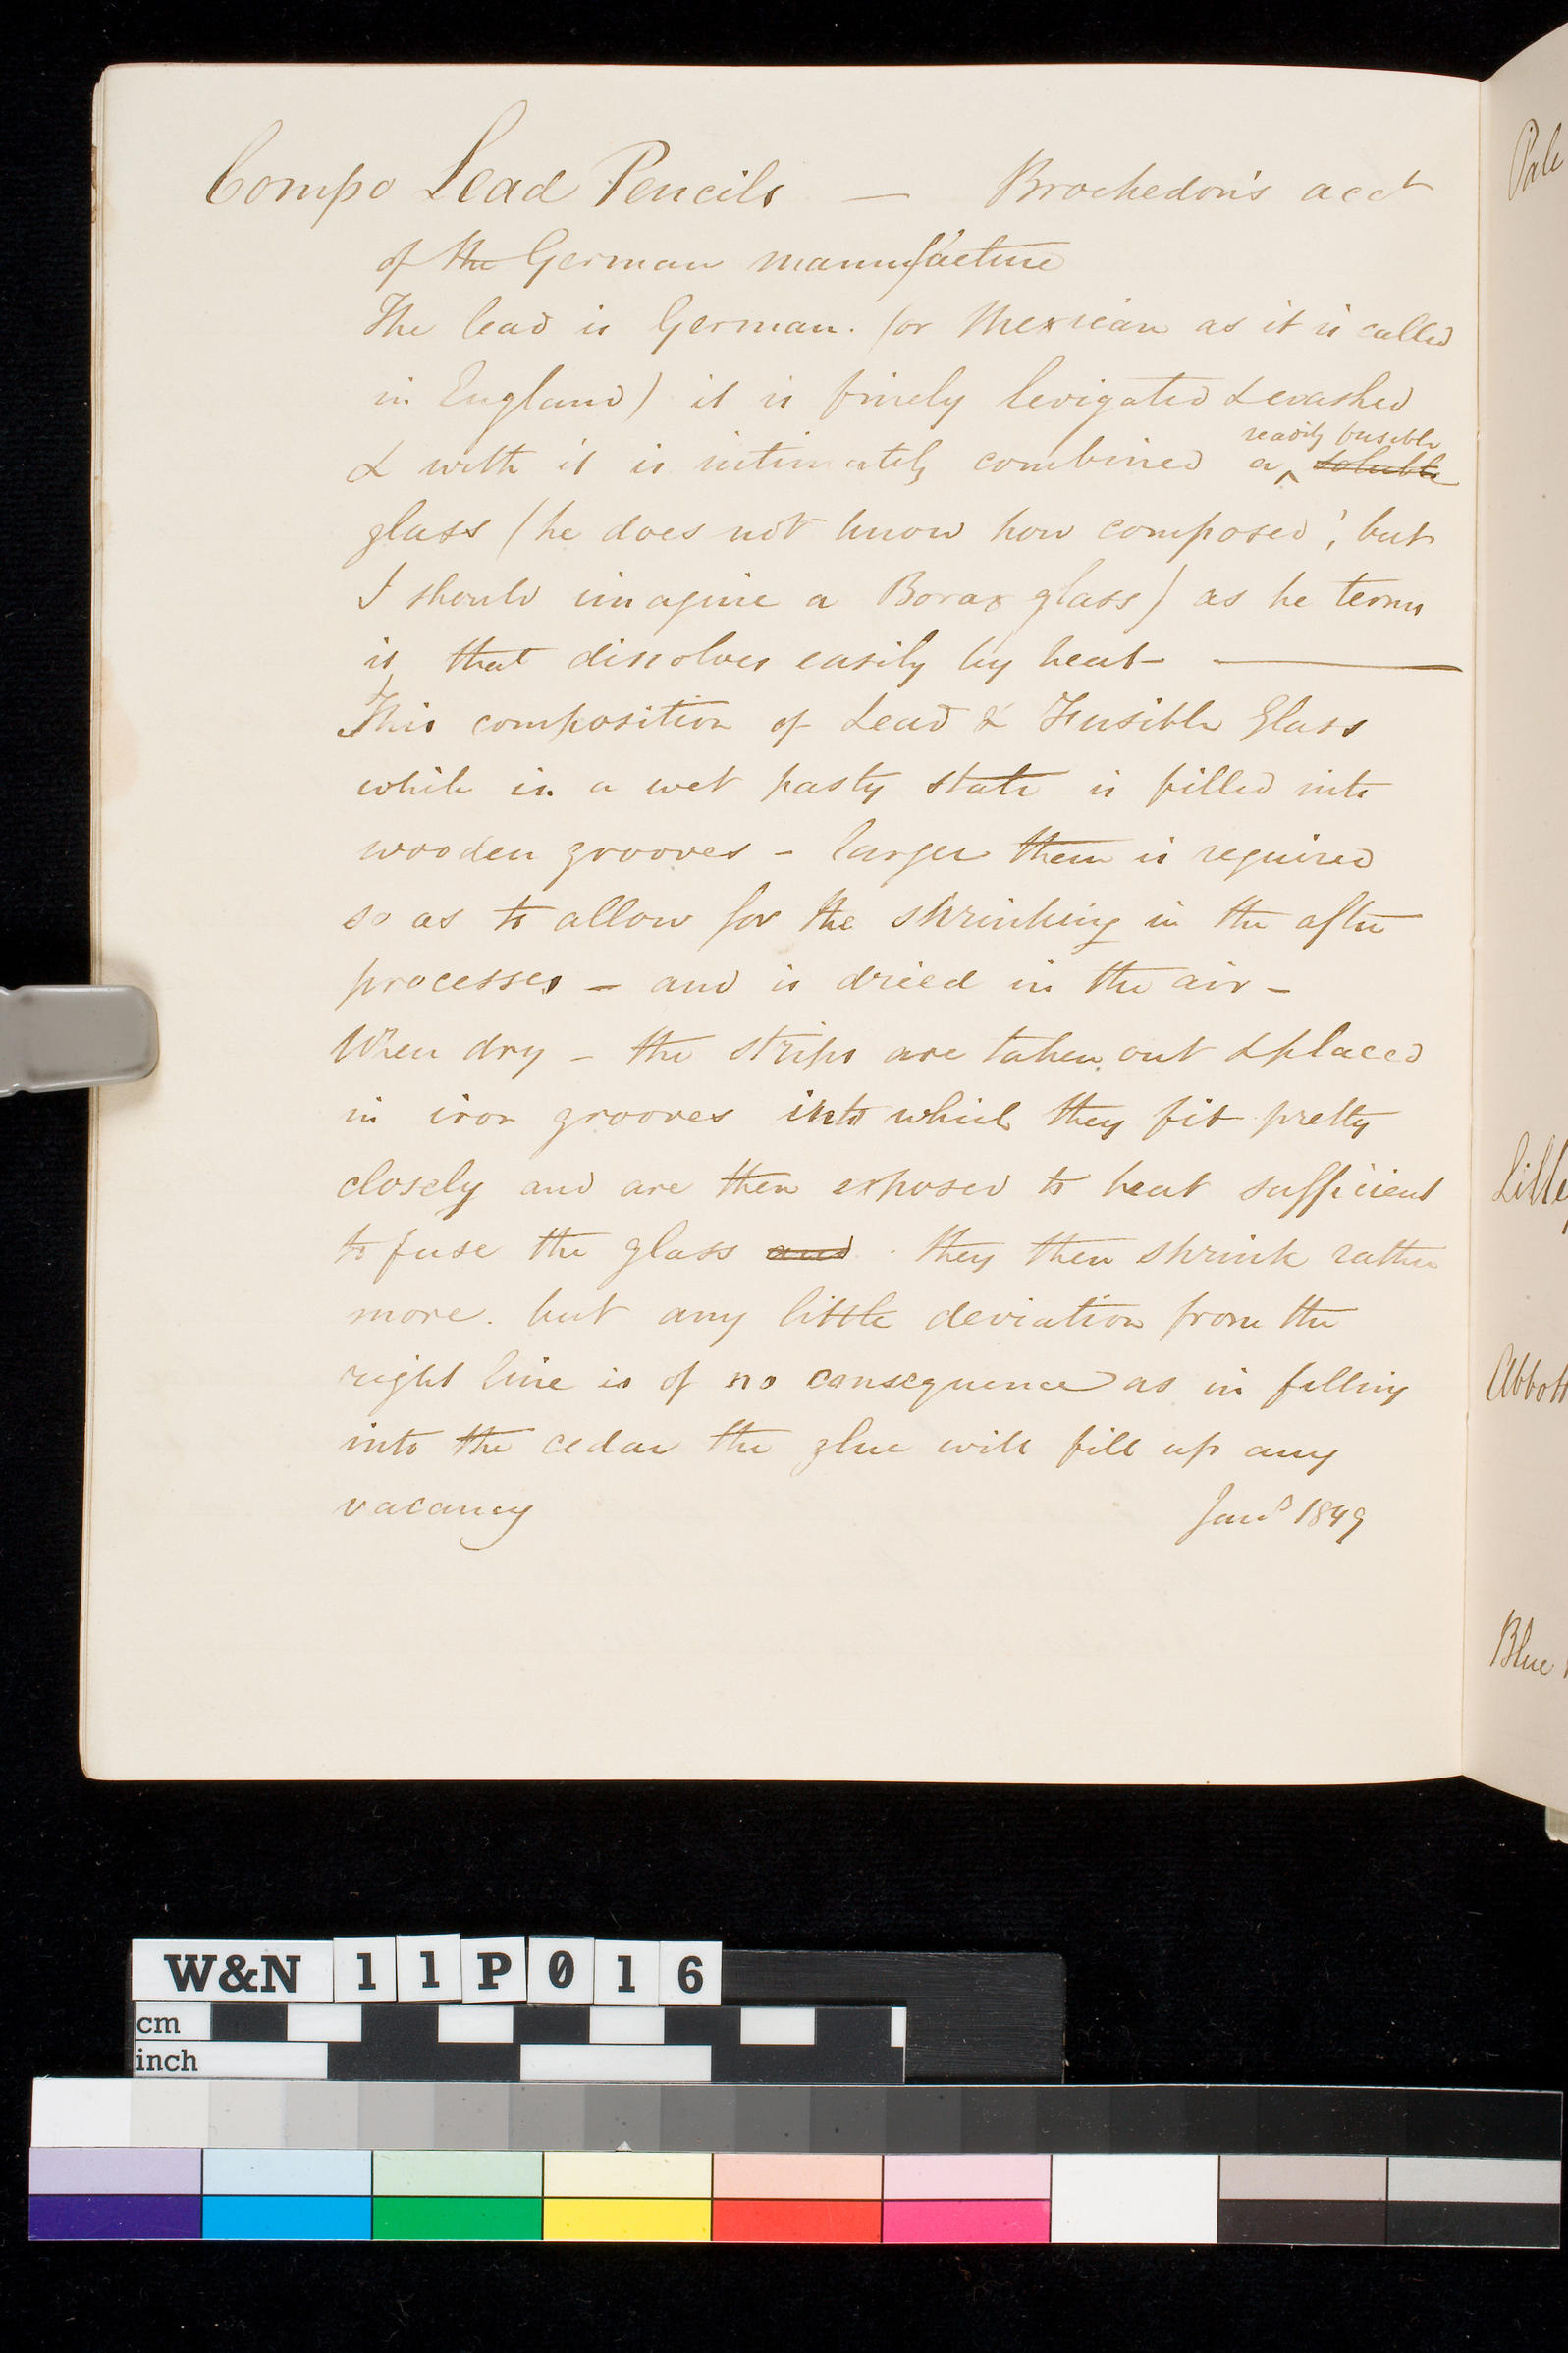 Compo Lead Pencils — Brockedon's acct
of the German manufacture
The lead is German. (or Mexican as it is called
in England) it is finely levigated & washed
readily fusible
& with it is intimately combined a ^ soluble
glass (he does not know how composed, but
I should imagine a Borax glass) as he terms
it, that dissolves easily by heat —
This composition of Lead & Fusible Glass
while in a wet pasty state is filled into
wooden grooves - larger than is required
so as to allow for the shrinking in the after
processes - and is dried in the air -
When dry - the strips are taken out & placed
in iron grooves into which they fit pretty
closely and are then exposed to heat sufficient
to fuse the glass and . they then shrink rather
more. but any little deviation from the
right line is of no consequence as in filling
into the cedar the glue will fill up any
vacancy
1849
Pale
Lille
Abbott
Blue
W&N 11P016
cm
inch